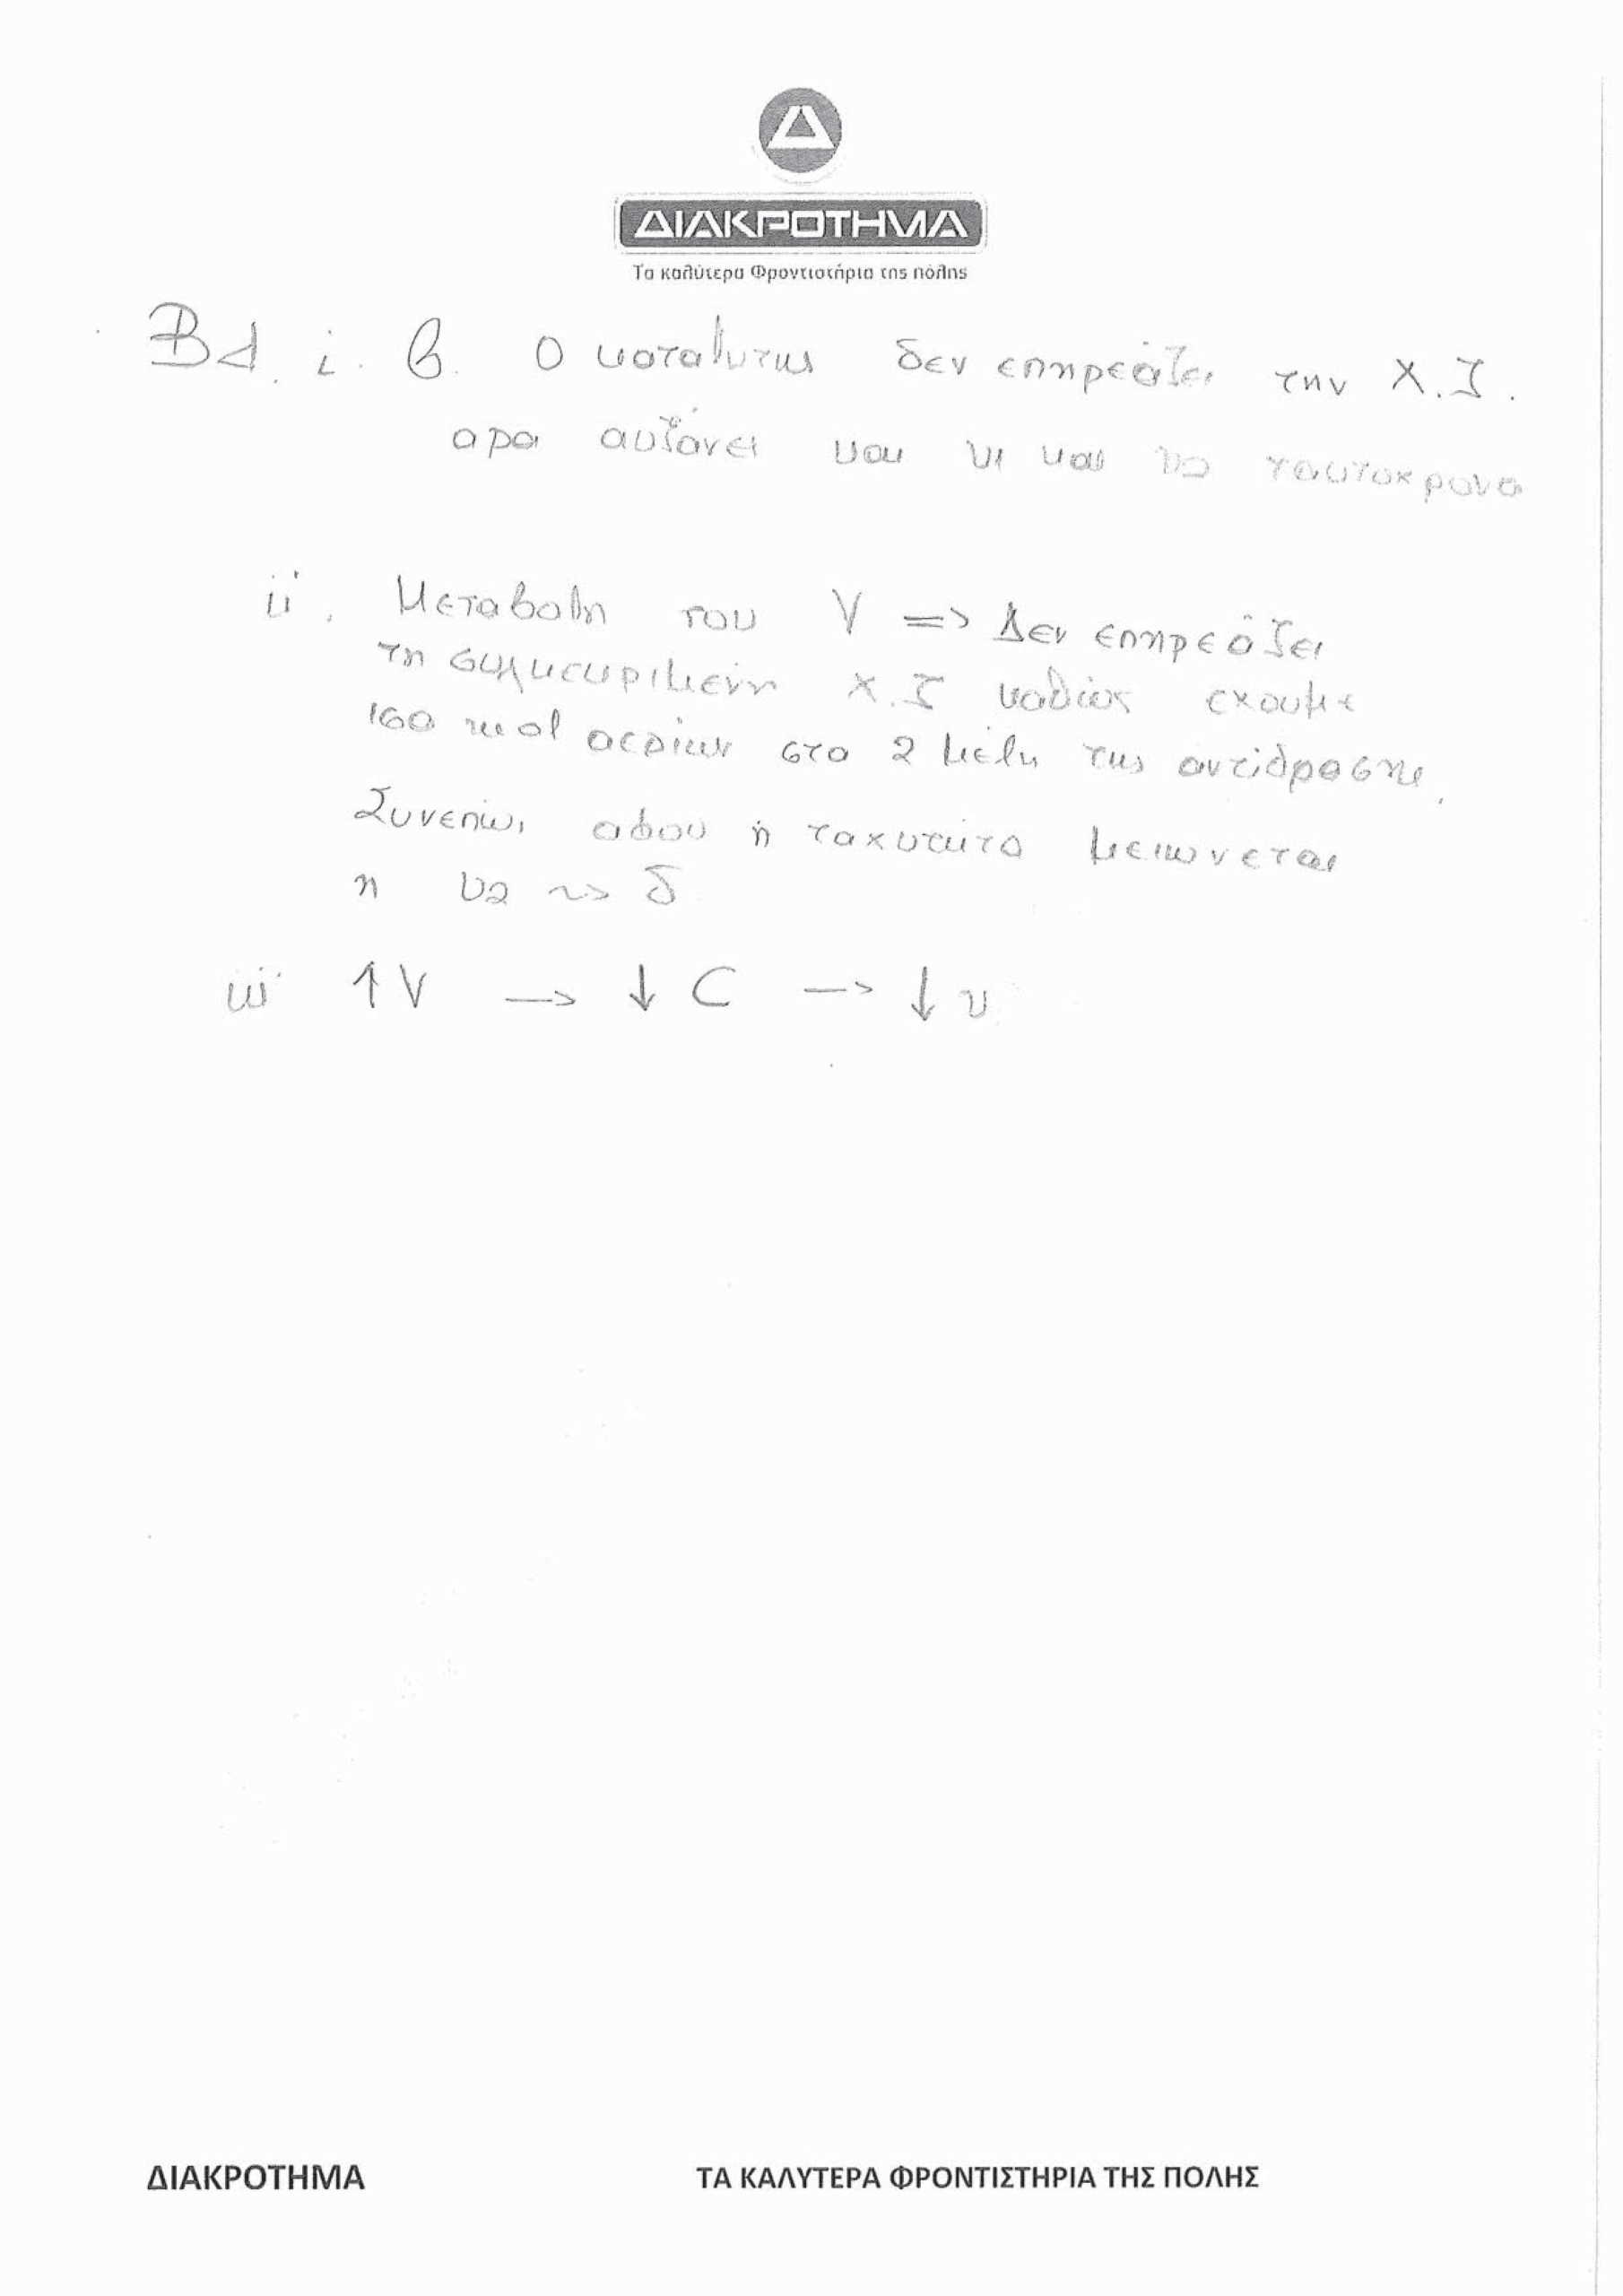 ΔΙΑΚΡΟΤΗΜΑ
Τα καλύτερα Φροντιστήρια της πόλης
Β4. i. β. Ο καταλυτης δεν επηρεάζει την Χ.Ι.
αρα αυξάνει και υ1 και υ2 ταυτοχρονα
ii. Μεταβολη του V => Δεν επηρεάζει
τη συγκεκριμενη Χ.Ι καθώς εχουμε
ισα mol αερίων στα 2 μελη της αντίδρασης.
Συνεπώς αφου η ταχυτητα μειωνεται
η υ2 ~> δ
iii ↑V -> ↓C -> ↓υ
ΔΙΑΚΡΟΤΗΜΑ ΤΑ ΚΑΛΥΤΕΡΑ ΦΡΟΝΤΙΣΤΗΡΙΑ ΤΗΣ ΠΟΛΗΣ